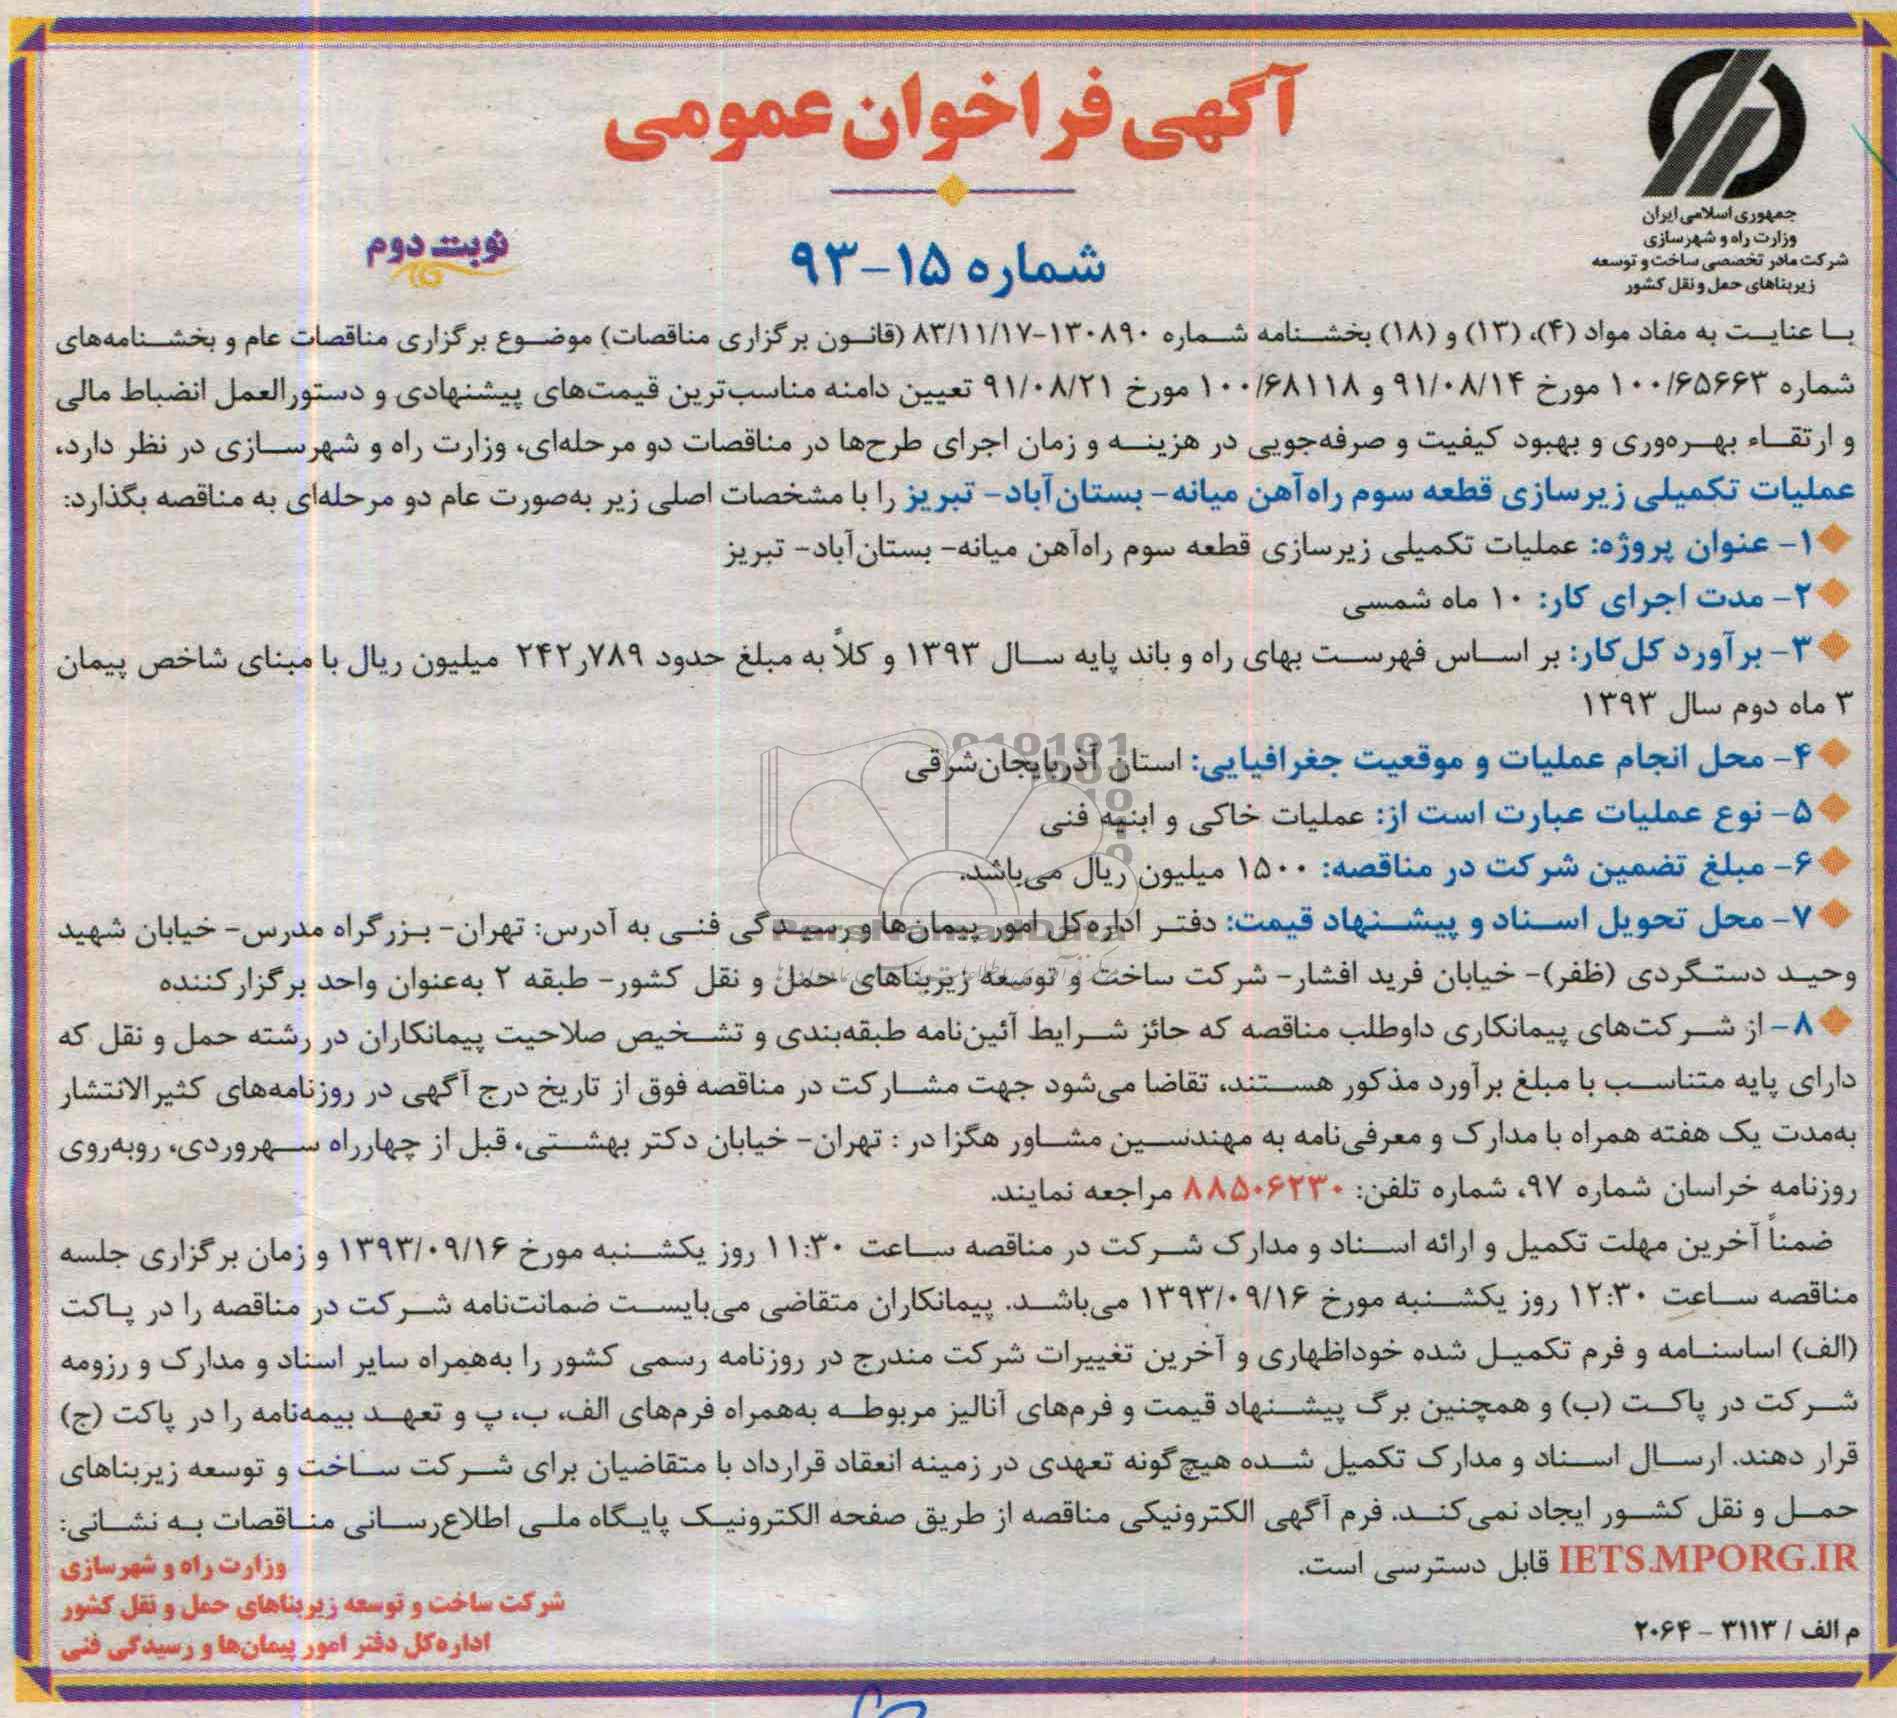 آگهی فراخوان عمومی
جمهوری اسلامی ایران
وزارت راه و شهرسازی
شرکت مادر تخصصی ساخت و توسعه
زیربناهای حمل و نقل کشور
شماره ۱۵-۹۳
نوبت دوم
با عنایت به مفاد مواد (۴)، (۱۳) و (۱۸) بخشنامه شماره ۱۳۰۸۹۰-۸۳/۱۱/۱۷ (قانون برگزاری مناقصات) موضوع برگزاری مناقصات عام و بخشنامه‌های
شماره ۱۰۰/۶۵۶۶۳ مورخ ۹۱/۰۸/۱۴ و ۱۰۰/۶۸۱۱۸ مورخ ۹۱/۰۸/۲۱ تعیین دامنه مناسب‌ترین قیمت‌های پیشنهادی و دستورالعمل انضباط مالی
و ارتقاء بهره‌وری و بهبود کیفیت و صرفه‌جویی در هزینه و زمان اجرای طرح‌ها در مناقصات دو مرحله‌ای، وزارت راه و شهرسازی در نظر دارد،
عملیات تکمیلی زیرسازی قطعه سوم راه‌آهن میانه- بستان‌آباد- تبریز را با مشخصات اصلی زیر به‌صورت عام دو مرحله‌ای به مناقصه بگذارد:
۱- عنوان پروژه: عملیات تکمیلی زیرسازی قطعه سوم راه‌آهن میانه- بستان‌آباد- تبریز
۲- مدت اجرای کار: ۱۰ ماه شمسی
۳- برآورد کل کار: بر اساس فهرست بهای راه و باند پایه سال ۱۳۹۳ و کلاً به مبلغ حدود ۲۴۲٫۷۸۹ میلیون ریال با مبنای شاخص پیمان
۳ ماه دوم سال ۱۳۹۳
۴- محل انجام عملیات و موقعیت جغرافیایی: استان آذربایجان‌شرقی
۵- نوع عملیات عبارت است از: عملیات خاکی و ابنیه فنی
۶- مبلغ تضمین شرکت در مناقصه: ۱۵۰۰ میلیون ریال می‌باشد.
ParsNamadData
۷- محل تحویل اسناد و پیشنهاد قیمت: دفتر اداره‌کل امور پیمان‌ها و رسیدگی فنی به آدرس: تهران- بزرگراه مدرس- خیابان شهید
وحید دستگردی (ظفر)- خیابان فرید افشار- شرکت ساخت و توسعه زیربناهای حمل و نقل کشور- طبقه ۲ به‌عنوان واحد برگزارکننده
۸- از شرکت‌های پیمانکاری داوطلب مناقصه که حائز شرایط آئین‌نامه طبقه‌بندی و تشخیص صلاحیت پیمانکاران در رشته حمل و نقل که
دارای پایه متناسب با مبلغ برآورد مذکور هستند، تقاضا می‌شود جهت مشارکت در مناقصه فوق از تاریخ درج آگهی در روزنامه‌های کثیرالانتشار
به‌مدت یک هفته همراه با مدارک و معرفی‌نامه به مهندسین مشاور هگزا در : تهران- خیابان دکتر بهشتی، قبل از چهارراه سهروردی، روبه‌روی
روزنامه خراسان شماره ۹۷، شماره تلفن: ۸۸۵۰۶۲۳۰ مراجعه نمایند.
ضمناً آخرین مهلت تکمیل و ارائه اسناد و مدارک شرکت در مناقصه ساعت ۱۱:۳۰ روز یکشنبه مورخ ۱۳۹۳/۰۹/۱۶ و زمان برگزاری جلسه
مناقصه ساعت ۱۲:۳۰ روز یکشنبه مورخ ۱۳۹۳/۰۹/۱۶ می‌باشد. پیمانکاران متقاضی می‌بایست ضمانت‌نامه شرکت در مناقصه را در پاکت
(الف) اساسنامه و فرم تکمیل شده خوداظهاری و آخرین تغییرات شرکت مندرج در روزنامه رسمی کشور را به‌همراه سایر اسناد و مدارک و رزومه
شرکت در پاکت (ب) و همچنین برگ پیشنهاد قیمت و فرم‌های آنالیز مربوطه به‌همراه فرم‌های الف، ب، پ و تعهد بیمه‌نامه را در پاکت (ج)
قرار دهند. ارسال اسناد و مدارک تکمیل شده هیچ‌گونه تعهدی در زمینه انعقاد قرارداد با متقاضیان برای شرکت ساخت و توسعه زیربناهای
حمل و نقل کشور ایجاد نمی‌کند. فرم آگهی الکترونیکی مناقصه از طریق صفحه الکترونیک پایگاه ملی اطلاع‌رسانی مناقصات به نشانی:
IETS.MPORG.IR قابل دسترسی است.
وزارت راه و شهرسازی
شرکت ساخت و توسعه زیربناهای حمل و نقل کشور
اداره‌کل دفتر امور پیمان‌ها و رسیدگی فنی
م الف / ۳۱۱۳ - ۲۰۶۴